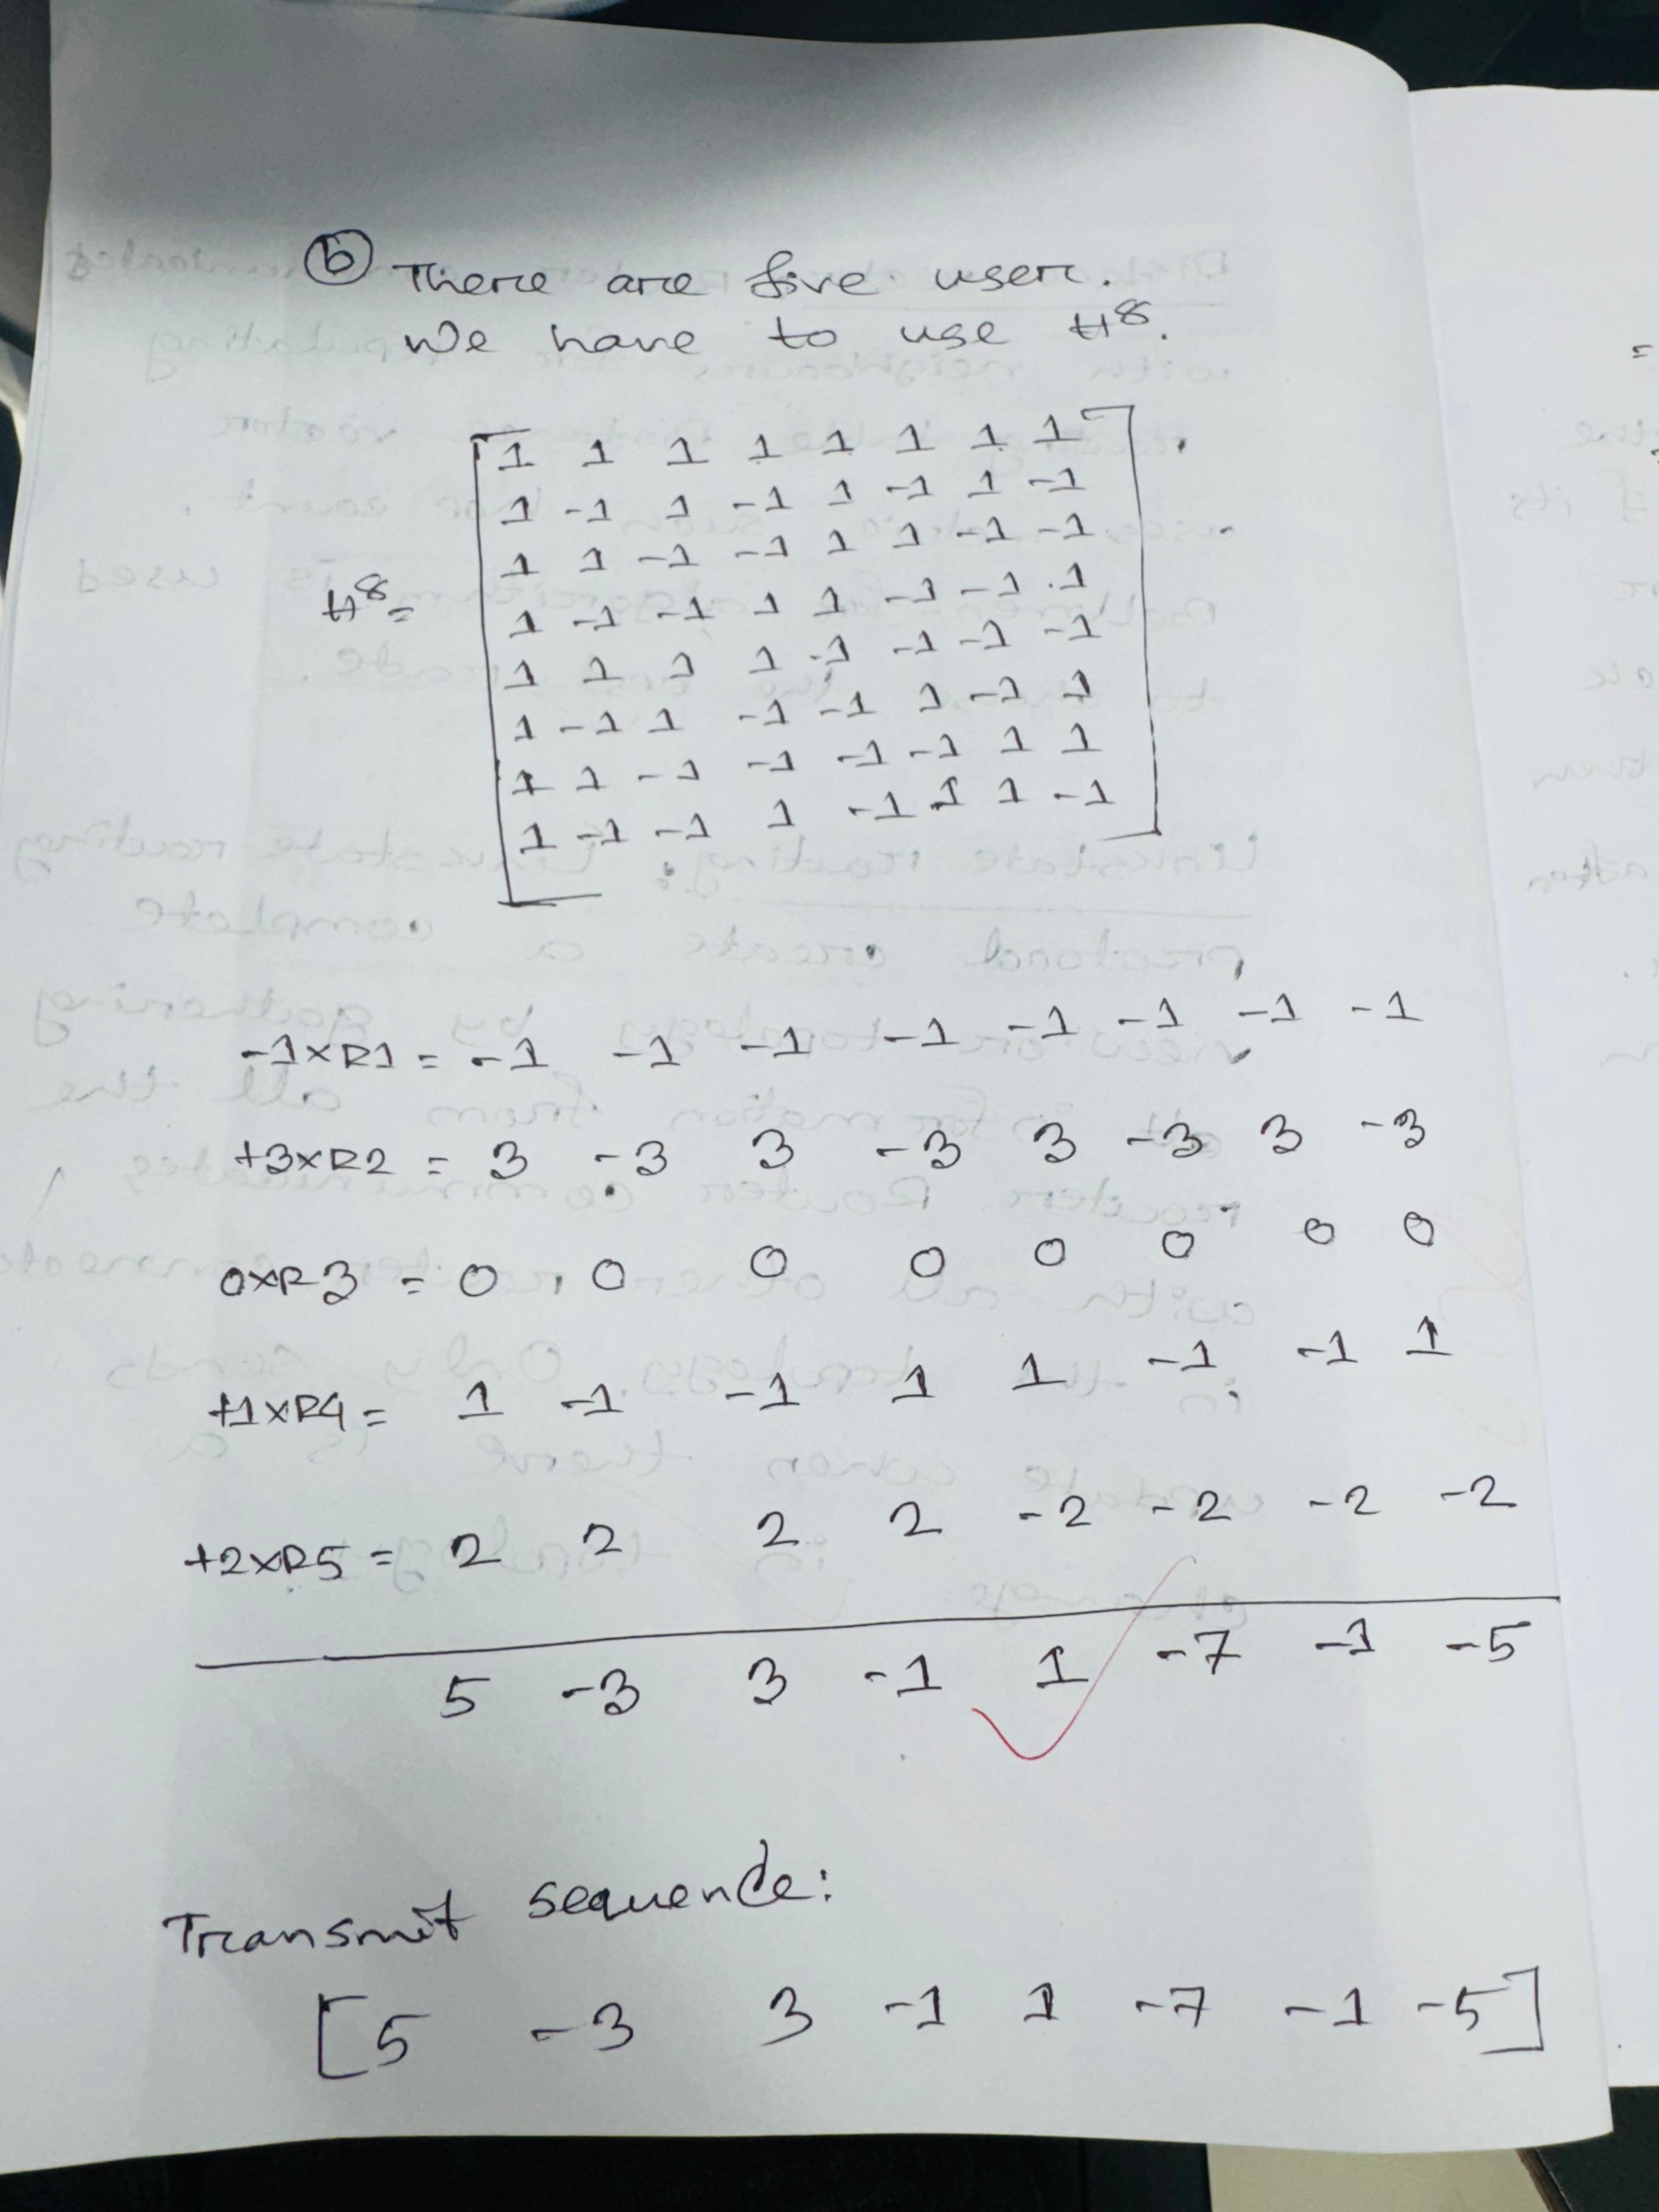 b There are five user.
We have to use H8.
H8=
1 1 1 1 1 1 1 1
1 -1 1 -1 1 -1 1 -1
1 1 -1 -1 1 1 -1 -1
1 -1 -1 1 1 -1 -1 1
1 1 1 1 -1 -1 -1 -1
1 -1 1 -1 -1 1 -1 1
1 1 -1 -1 -1 -1 1 1
1 -1 -1 1 -1 1 1 -1
-1×R1 = -1 -1 -1 -1 -1 -1 -1 -1
+3×R2 = 3 -3 3 -3 3 -3 3 -3
0×R3 = 0 0 0 0 0 0 0 0
+1×R4 = 1 -1 -1 1 1 -1 -1 1
+2×R5 = 2 2 2 2 -2 -2 -2 -2
5 -3 3 -1 1 -7 -1 -5
Transmit sequence:
[5 -3 3 -1 1 -7 -1 -5]